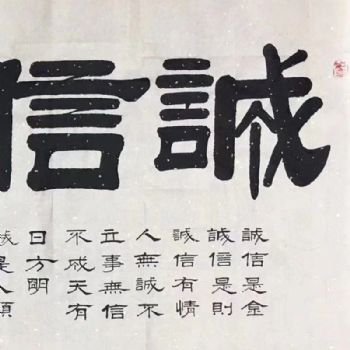 誠信
誠信是金
誠信是則
誠信有情
人無誠不
立事無信
不成天有
日方明
是人